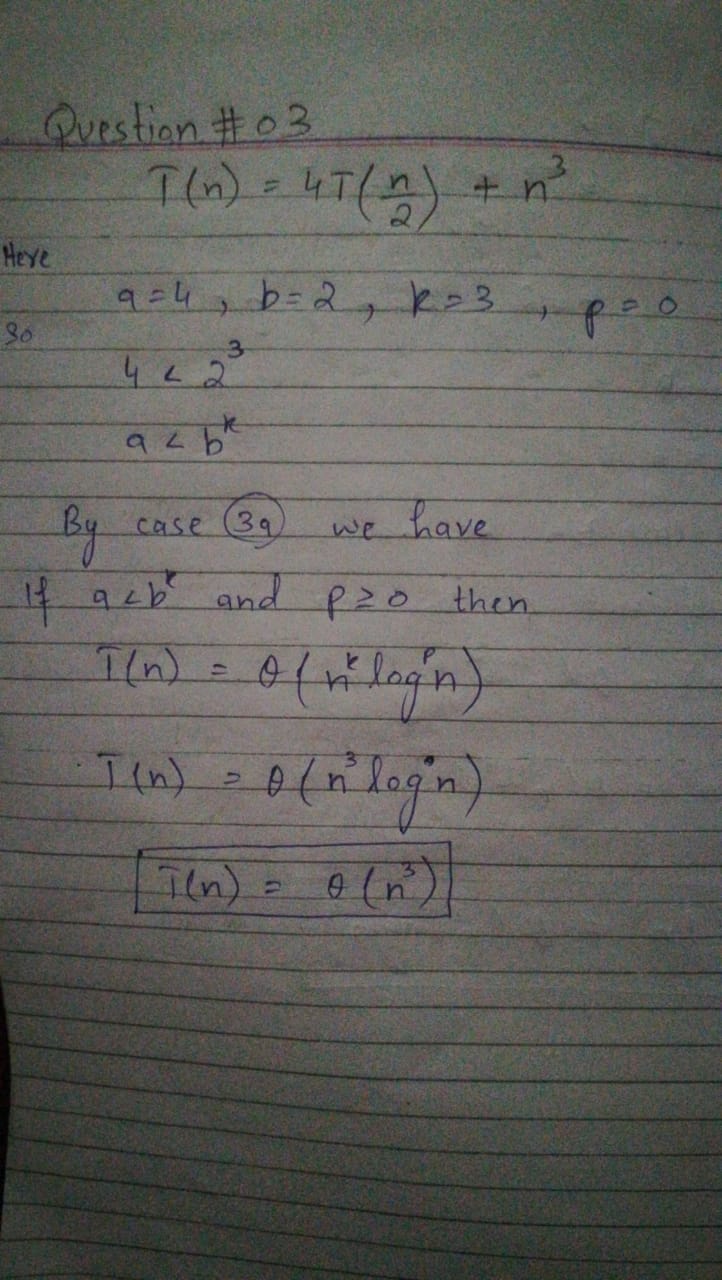 Question #03
T(n) = 4T(n/2) + n³
Here
a=4, b=2, k=3, p=0
So
4 < 2³
a < bᵏ
By case (3a) we have
If a<bᵏ and p≥0 then
T(n) = θ(nᵏ logᵖn)
T(n) = θ(n³ log⁰n)
T(n) = θ(n³)